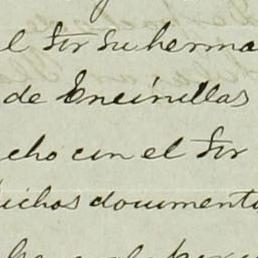 el Sor su herma
de Encinillas
cho con el Sor
dichos documento